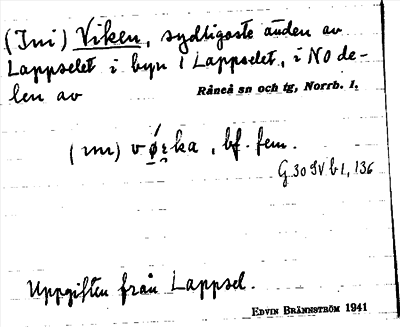 (Ini) Viken, sydligaste änden av
Lappselet i byn i Lappselet, i NO de-
len av
Råneå sn och tg, Norrb. l.
(ını) vǿɛka, bf. fem.
G. 30 SV b 1, 136
Uppgiften från Lappsel.
EDVIN BRÄNNSTRÖM 1941